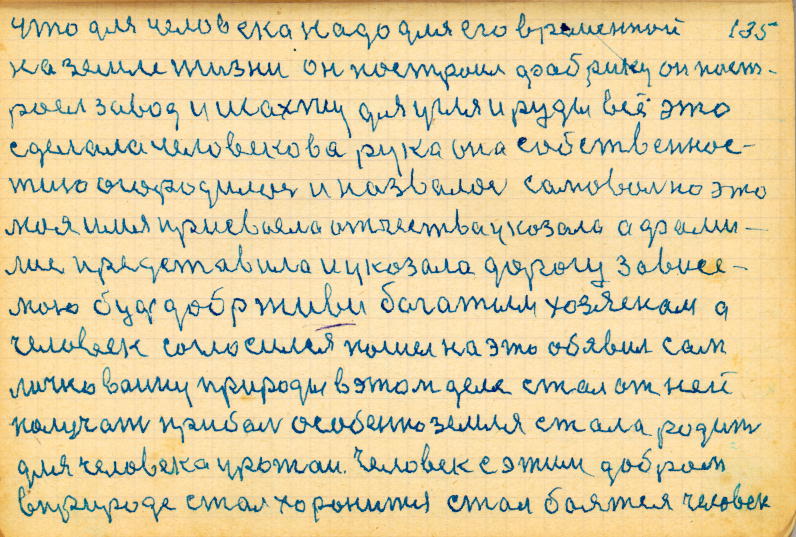 что для человека надо для его временной 135
на земле жизни он построил фабрику он пост-
роел завод и шахту для угля и руды всё это
сделала человекова рука она собственнос-
тию огородилос и назвалос самовольно это
моя имя присваела отчества указала а фами-
лие представила и указала дорогу зависе-
мою будь добр живи богатым хозяеном а
человек согласился пошел на это обявил сам
личкованку природы в этом деле стал от ней
получат прибал особенно земля стала родит
для человека урожаи. Человек с этим добром
в природе стал хоронится стал боятся человек